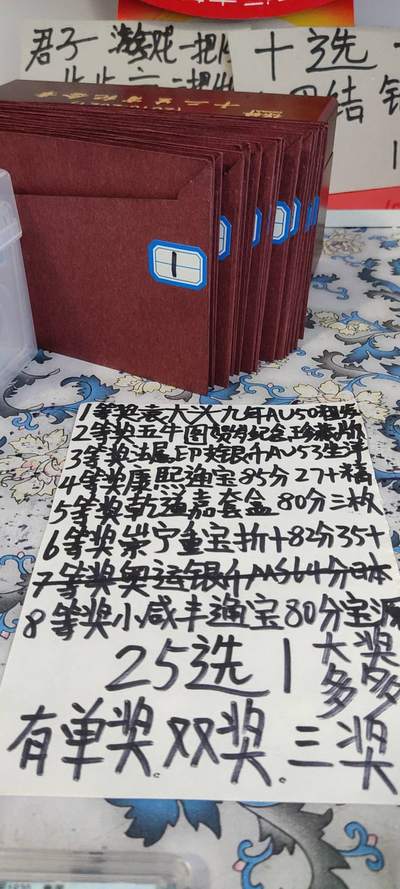 君子游戏一把
十选一
结
1
1等奖袁大头九年AU50粗发
2等奖五牛图贺岁纪念珍藏版
3等奖法属印支银币AU53生洋
4等奖康熙通宝85分27+精
5等奖乾道嘉套盒80分三枚
6等奖崇宁重宝折十82分35+
7等奖奥运银币MS64分日本
8等奖小咸丰通宝80分宝源
25选1大奖多多
有单奖.双奖.三奖